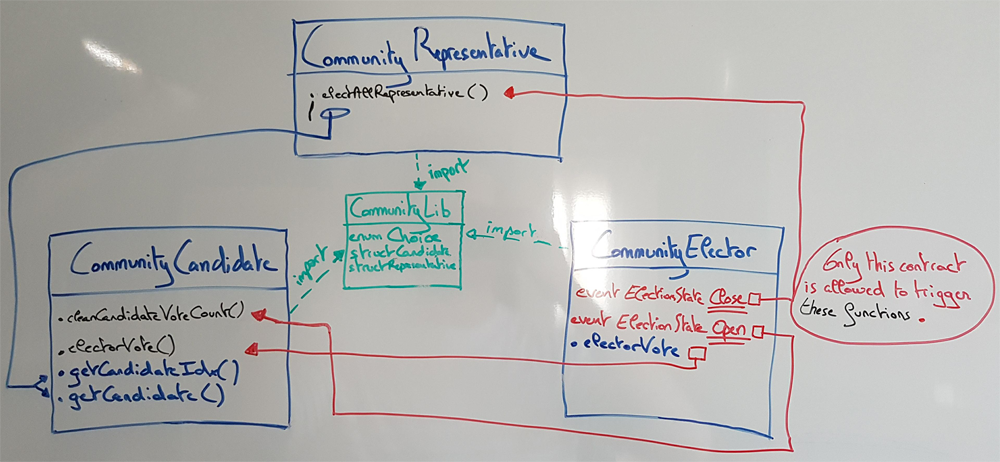 Community Representative
electAllRepresentative()
import
CommunityLib
enum Choice
struct Candidate
struct Representative
import
import
CommunityCandidate
.cleanCandidateVoteCount()
.electorVote()
.getCandidateIdx()
.getCandidate()
CommunityElector
event ElectionState Close
event ElectionState Open
.electorVote
Only this contract
is allowed to trigger
these functions.